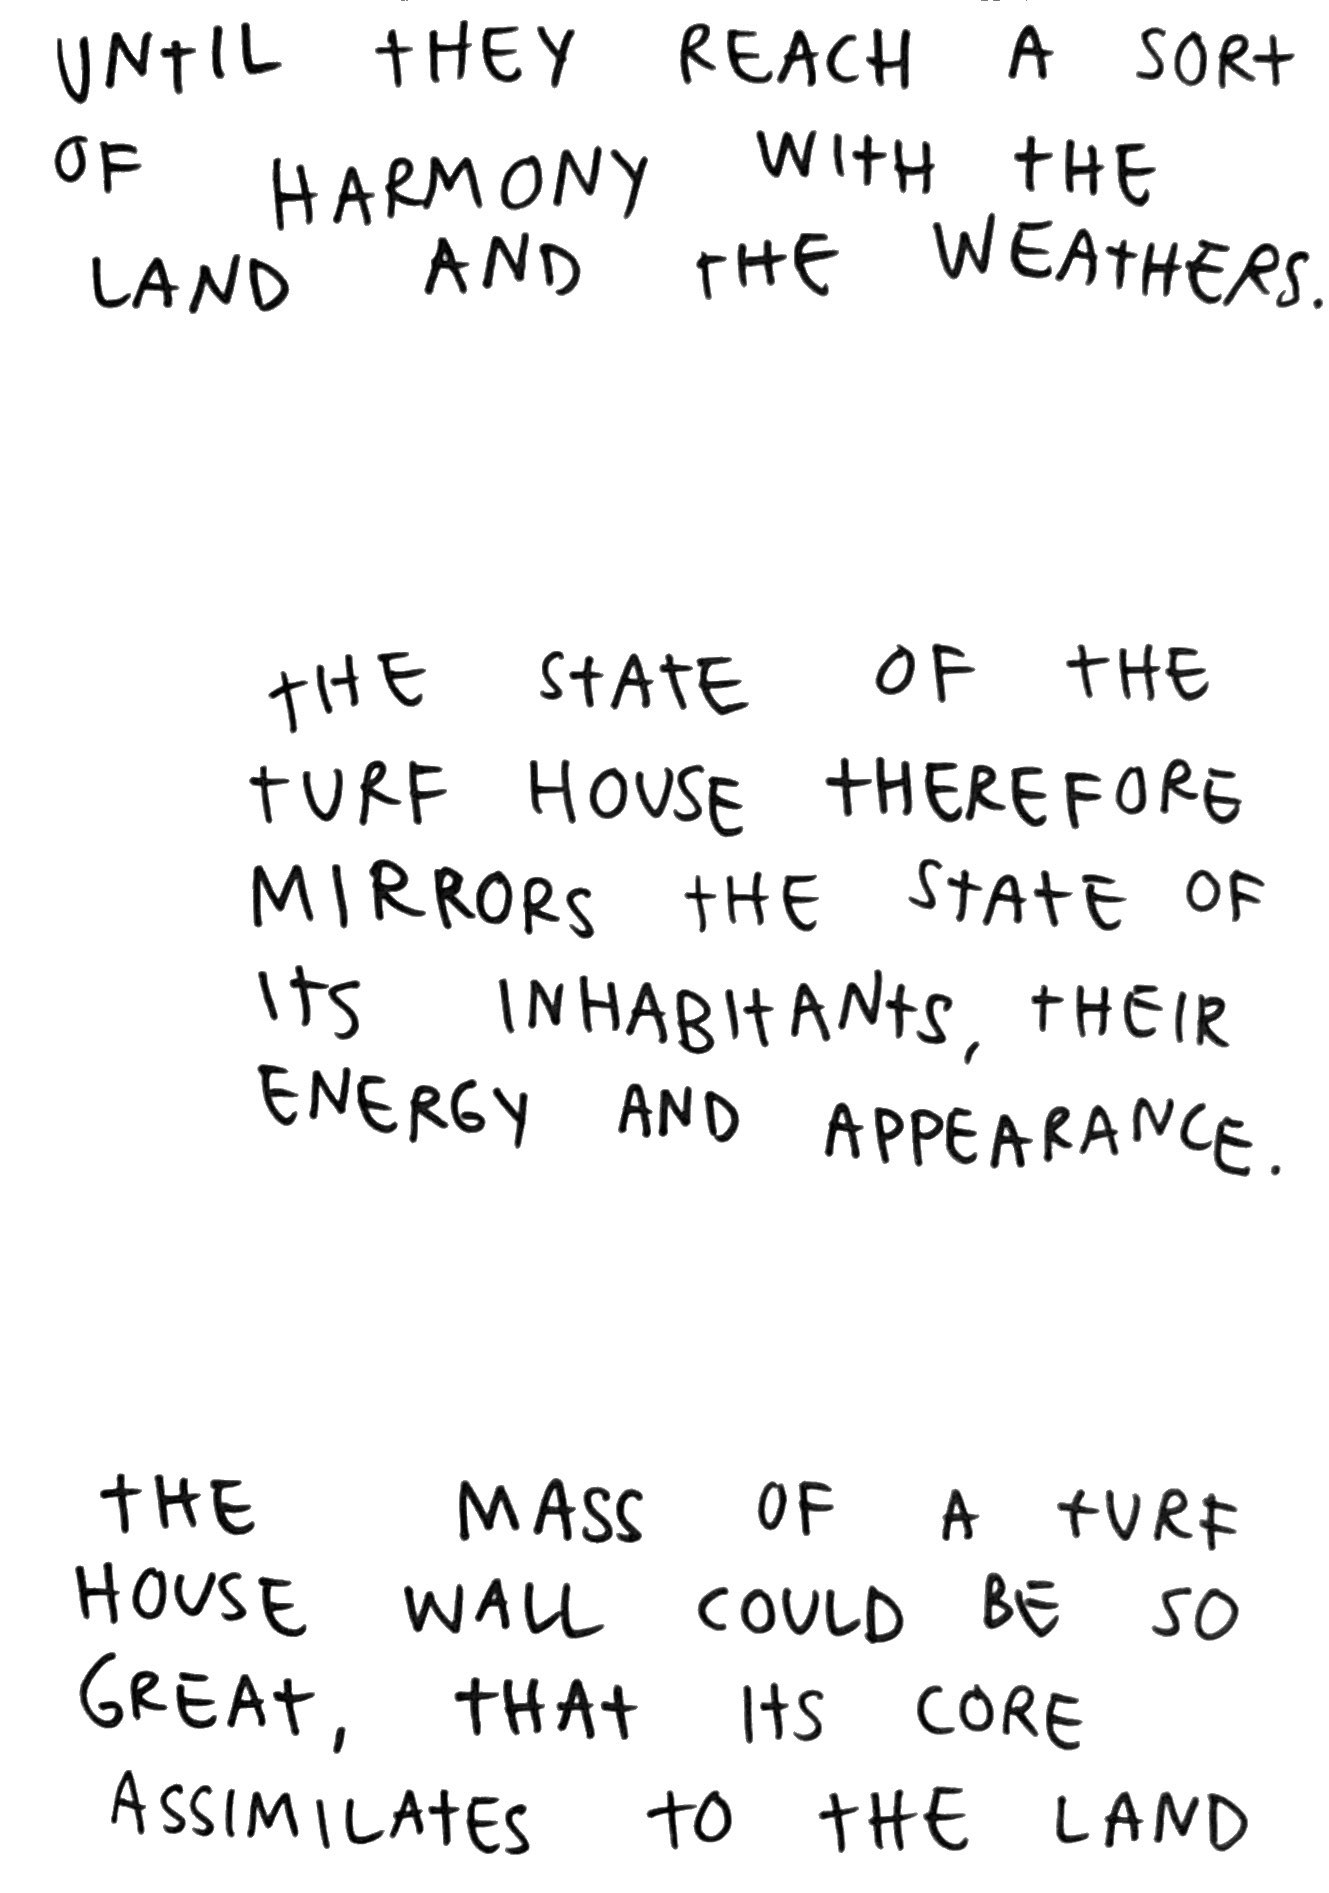 UNTIL THEY REACH A SORT
OF HARMONY WITH THE
LAND AND THE WEATHERS.
THE STATE OF THE
TURF HOUSE THEREFORE
MIRRORS THE STATE OF
ITS INHABITANTS, THEIR
ENERGY AND APPEARANCE.
THE MASS OF A TURF
HOUSE WALL COULD BE SO
GREAT, THAT ITS CORE
ASSIMILATES TO THE LAND